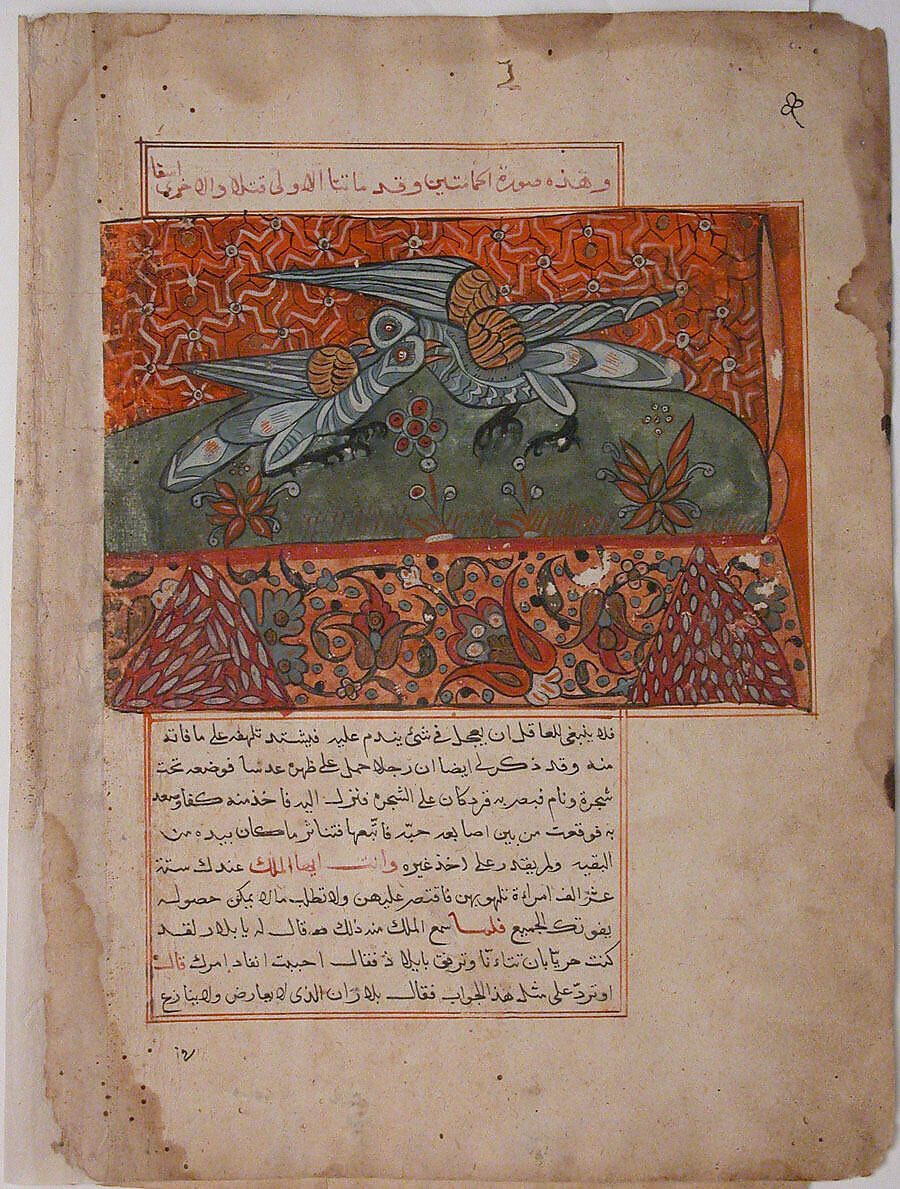 وهذه صورة الحمامتين وقد ماتتا الاولى قتلا والاخرى اسفا
فلا ينبغى للعاقل ان يعجل فى شئ يندم عليه فيشتد تلهفه على ما فاته
منه وقد ذكر لى ايضا ان رجلا حمل على ظهره عدسا فوضعه تحت
شجرة ونام فبصر به قرد كان على الشجرة فنزل اليه فاخذ منه كفا وصعد
به فوقعت من بين اصابعه حبه فاتبعها فتناثر ما كان بيده من
البقيه ولم يقدر على اخذ غيره وانت ايها الملك عندك ستة
عشر الف امراءة تلهو بهن فاقتصر عليهن ولا تطلب ما لا يمكن حصوله
يفوتك الجميع فلما سمع الملك منه ذلك قال له يا بلار لقد
كنت حريا بان تتاءنا وتربقى يا بلاد فقال احببت انفاد امرك قال
اوترد على مثله هذا الجواب فقال بلار ان الذى لا يعارض ولا ينازع